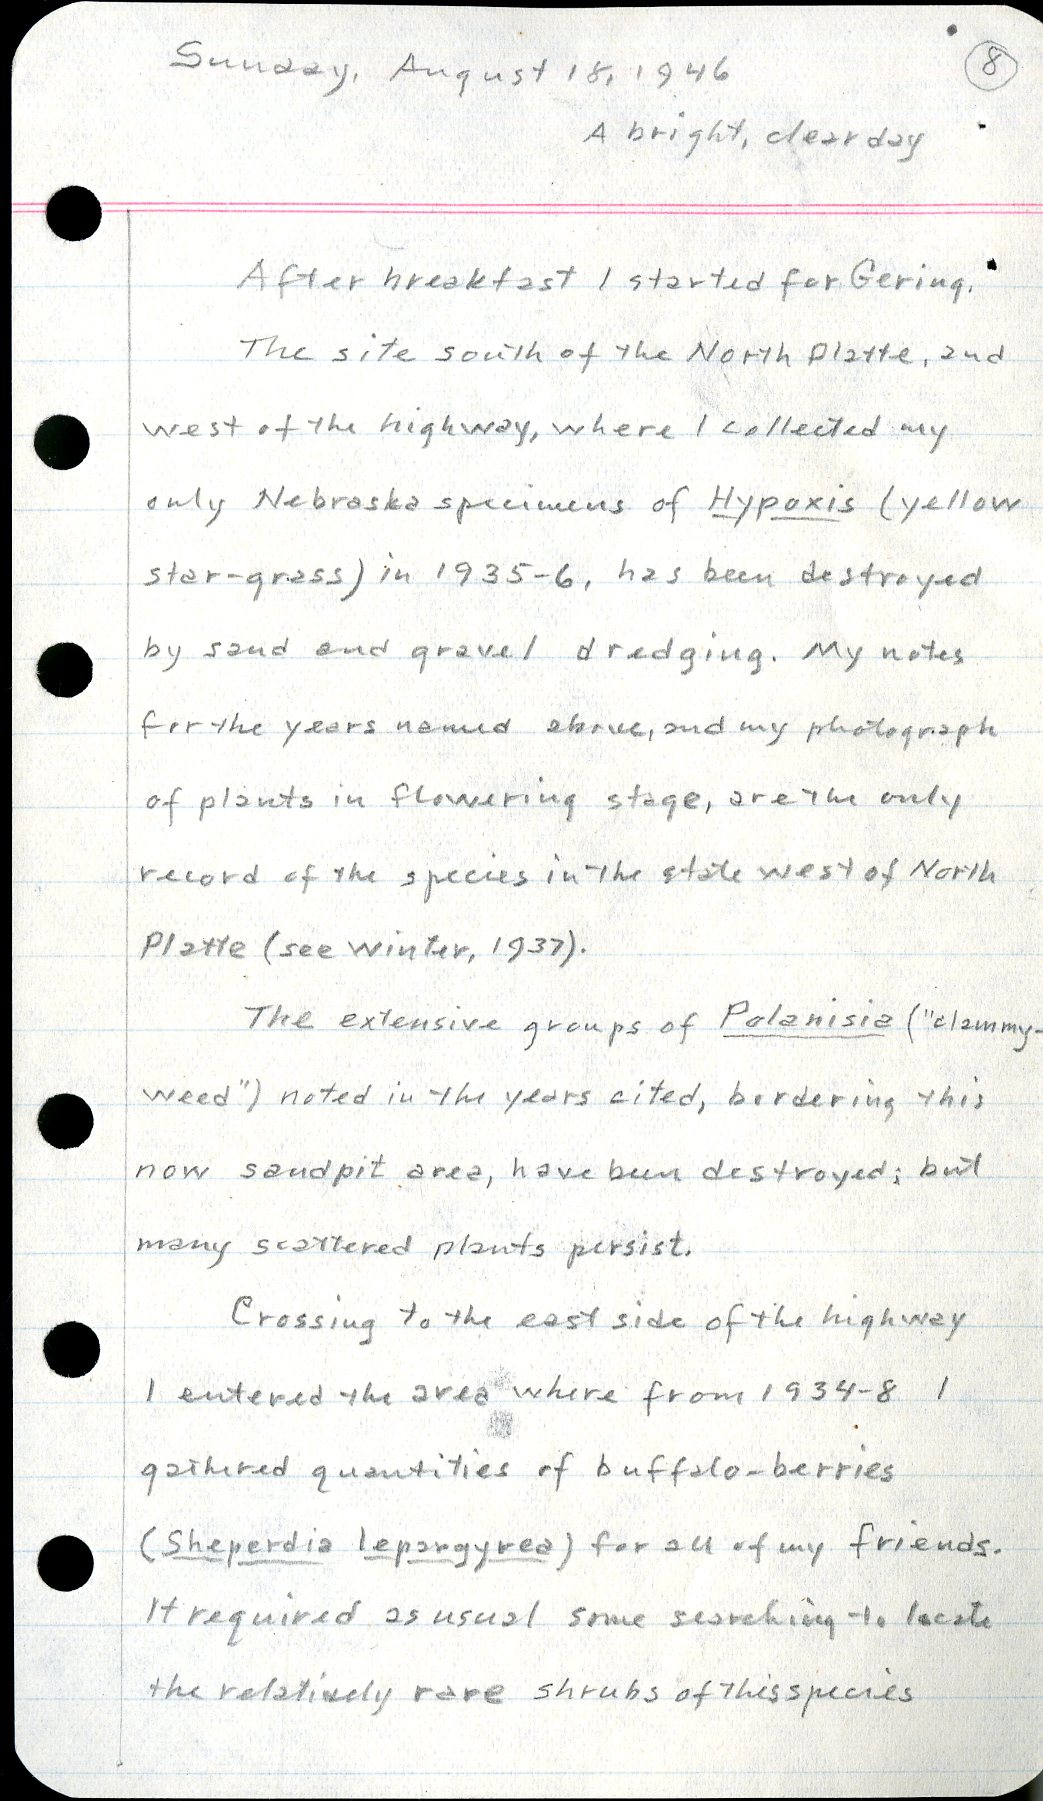 Sunday, August 18, 1946
8
A bright, clear day
After breakfast I started for Gering.
The site south of the North Platte, and
west of the highway, where I collected my
only Nebraska specimens of Hypoxis (yellow
star-grass) in 1935-6, has been destroyed
by sand and gravel dredging. My notes
for the years named above, and my photograph
of plants in flowering stage, are the only
record of the species in the state west of North
Platte (see Winter, 1937).
The extensive groups of Polanisia ("clammy-
weed") noted in the years cited, bordering this
now sandpit area, have been destroyed; but
many scattered plants persist.
Crossing to the east side of the highway
I entered the area where from 1934-8 I
gathered quantities of buffalo-berries
(Sheperdia lepargyrea) for all of my friends.
It required as usual some searching to locate
the relatively rare shrubs of this species